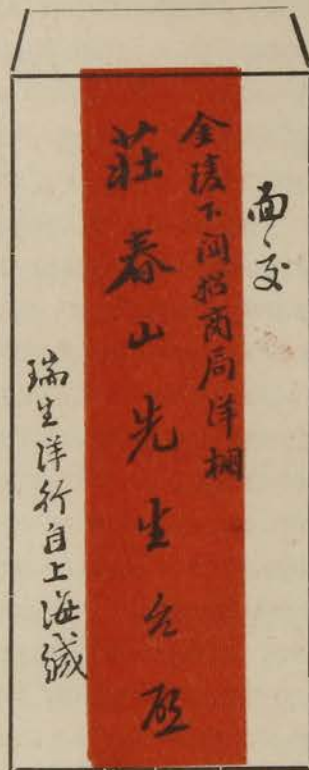 面交
金陵下関招商局洋棚
莊春山先生台啟
瑞生洋行自上海緘